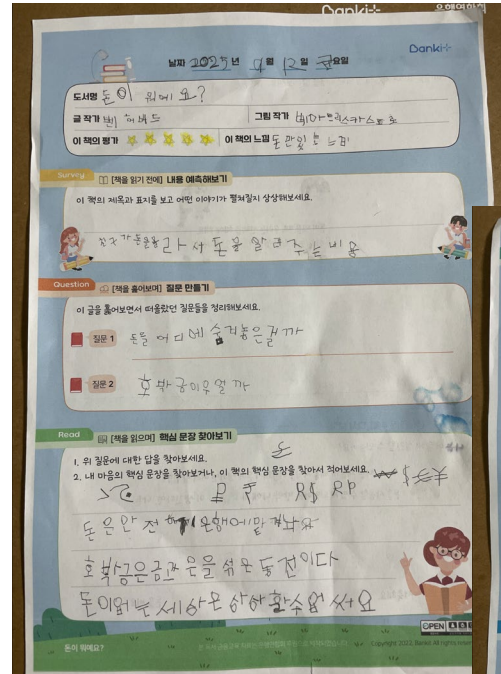 Danki
은행연합회
Danki
날짜 2025년 9월 12일 금요일
도서명 돈이 뭐예요?
글 작가
그림 작가 베아트리스카스트로
이 책의 평가 ☆☆☆☆☆ 이 책의 느낌 돈 만 있는 느낌
Survey [책을 읽기 전에] 내용 예측해보기
이 책의 제목과 표지를 보고 어떤 이야기가 펼쳐질지 상상해보세요.
돈을 알려주는 내용
Question [책을 훑어보며] 질문 만들기
이 글을 훑어보면서 떠올랐던 질문들을 정리해보세요.
질문 1 돈을 어디에 숨겨놓은걸까
질문 2 호박금이무얼까
Read [책을 읽으며] 핵심 문장 찾아보기
1. 위 질문에 대한 답을 찾아보세요.
2. 내 마음의 핵심 문장을 찾아보거나, 이 책의 핵심 문장을 찾아서 적어보세요.
돈은안전 은행에맡
호박금은금과은을섞은동전이다
돈이업는세상은상상할수업써요
OPEN
돈이 뭐예요?
Copyright 2023. Banki All rights reserved